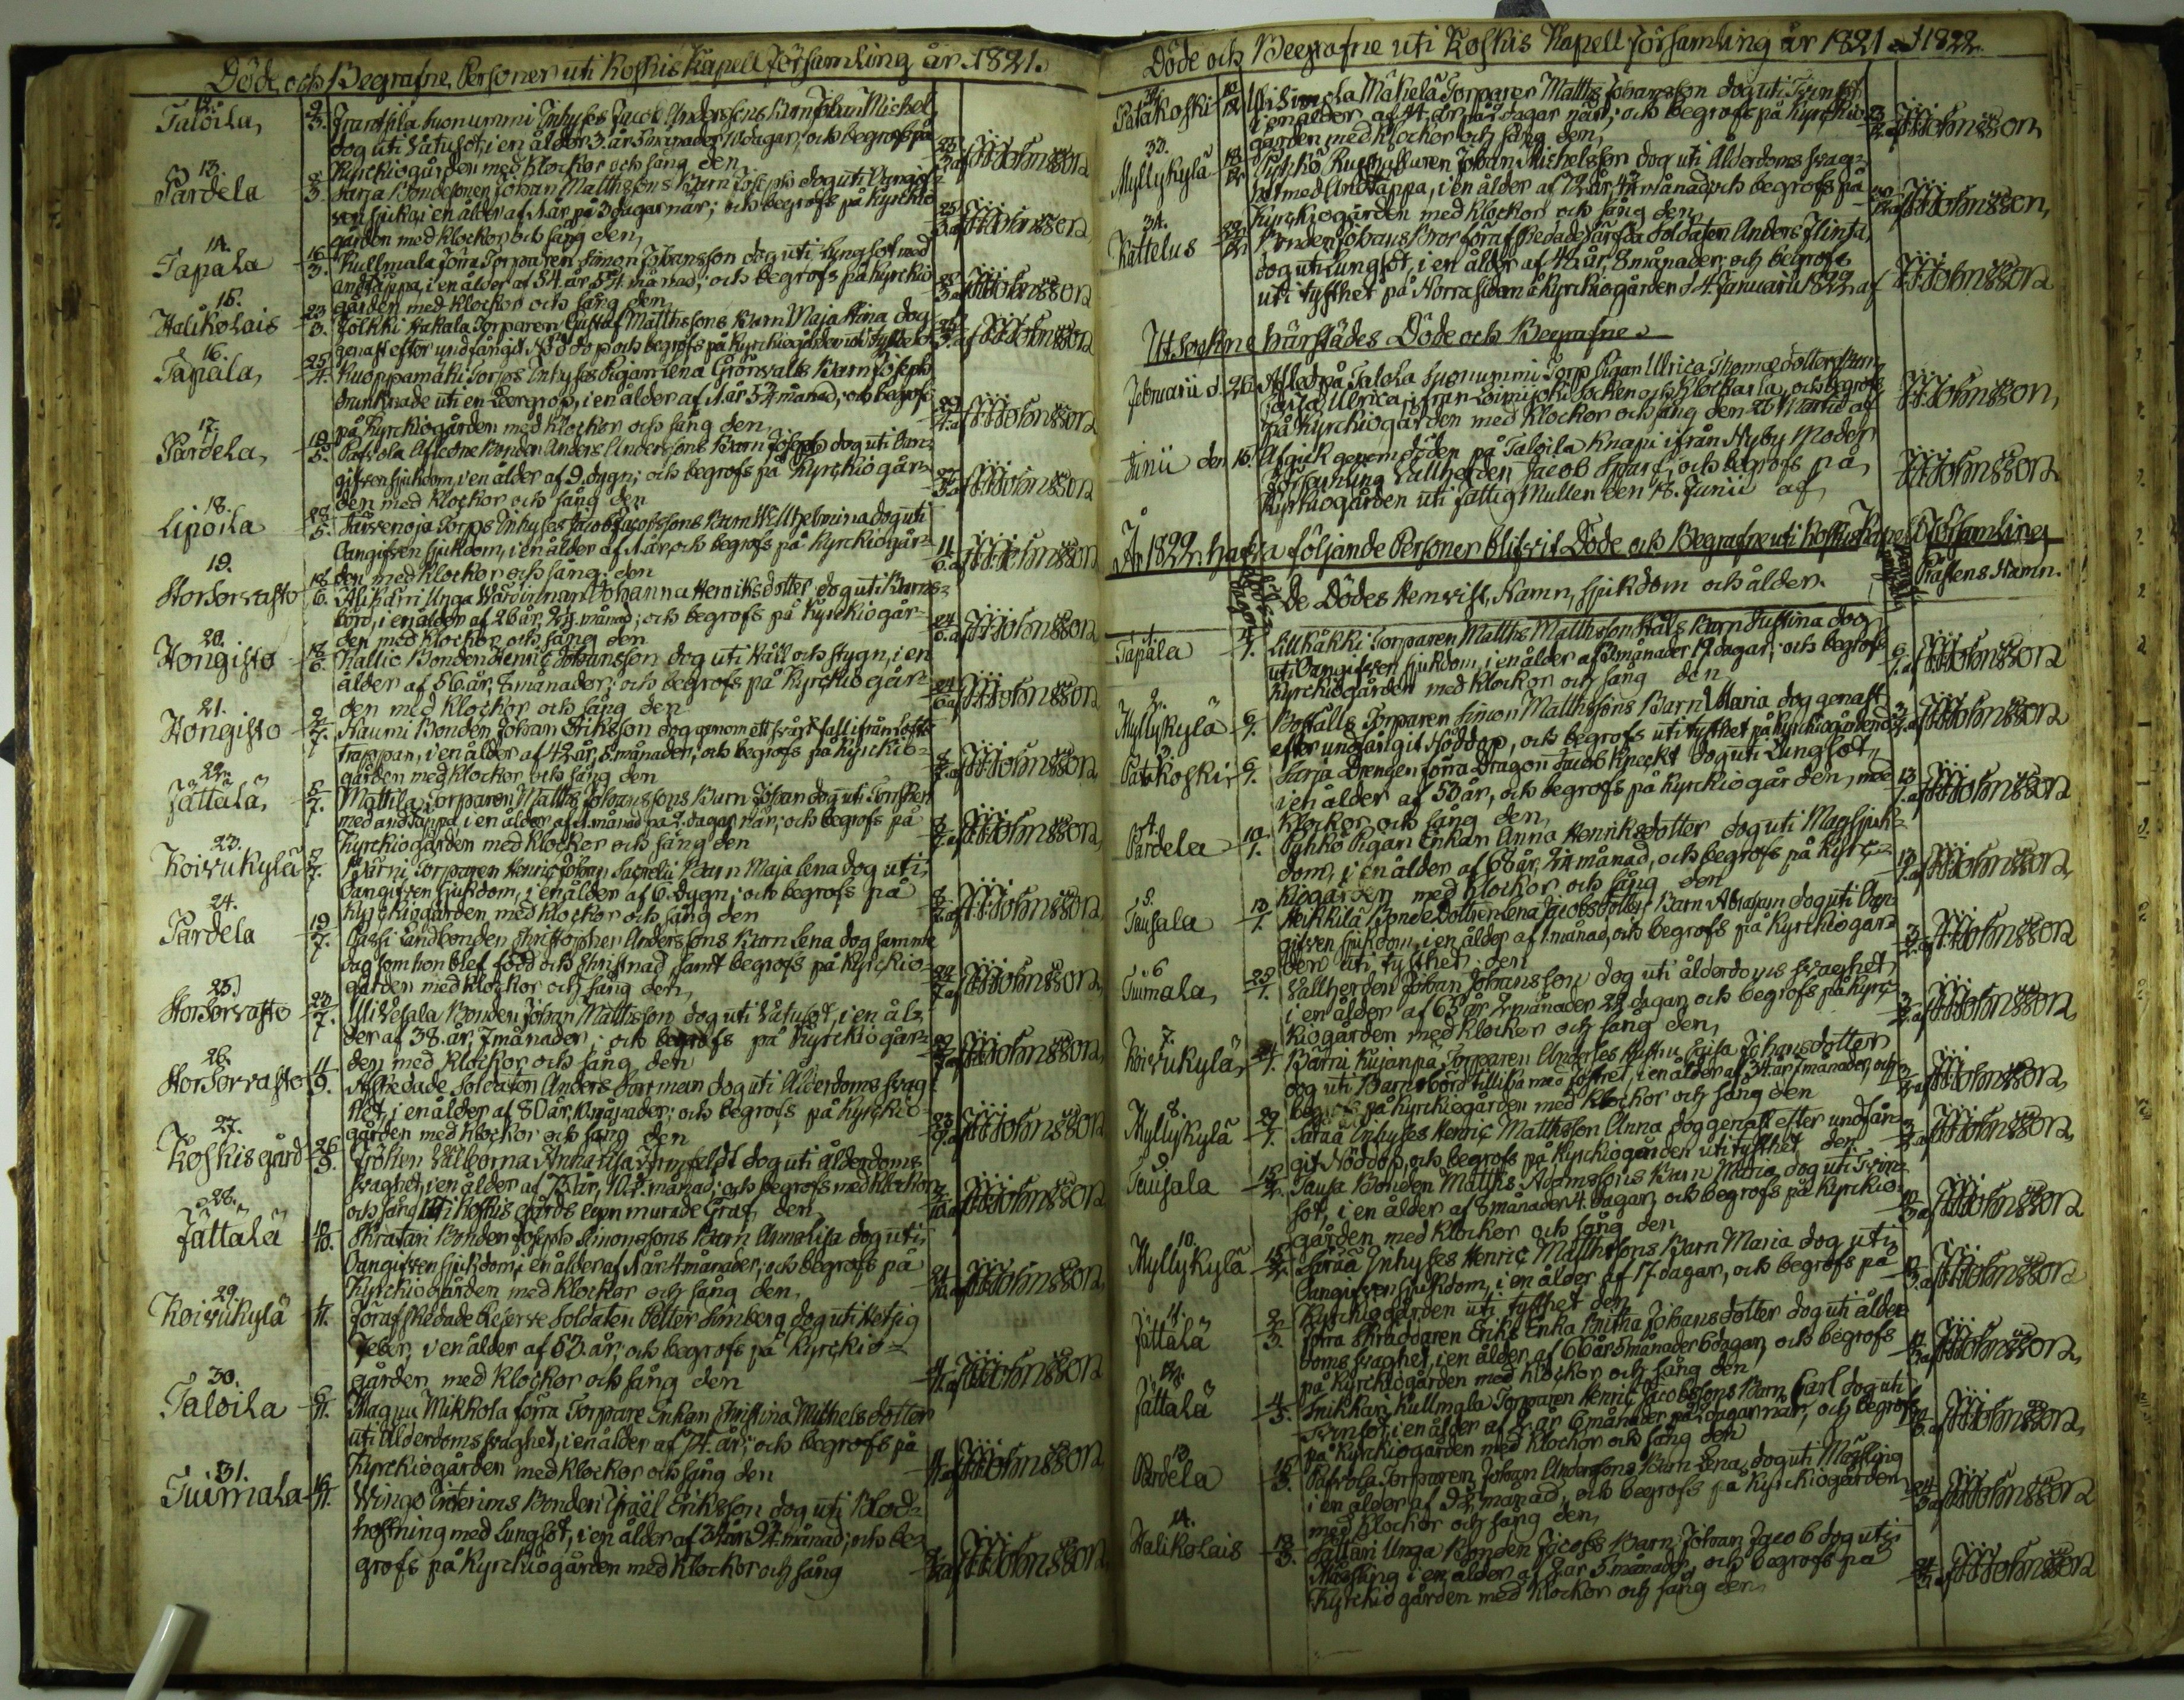 Döde och Begrafne Personer uti Koskis Kapell Församling år 1821.
12.
Taloila, 9/3. Inhyses Jacob Anderssons Barn Johan Michel
dog uti Vatusot, i en ålder 3. år 5 månader 10 dagar, och begrofs på
Kyrckiogården med Klockor och sång den 25/3. af JJJohnsson
13.
Pardela 8/3. Sarja Bondesonen Johan Matthssons Barn Joseph dog uti Oangif-
ven sjuka, i en ålder af 1. år på 3 dagar när; och begrofs på Kyrckio
gården med klockor och sång den, 25/3. af JJJohnsson
14.
Tapala 16/3. Kullmala förra Torparen Simon Johansson dog uti Lungsot med
andtäppa, i en ålder af 54. år 5¾ månad; och begrofs på Kyrckio
gården med klockor och sång den 25/3. af JJJohnsson
15.
Halikolais 23/3. Torparen Gustaf Matthssons Barn Maja Stina dog
genast efter undfångit Nöddop och begrofs på Kyrckiogården uti tysthet d. 25/3. af JJJohnsson
16.
Tapala, 25/4. Kuoppamäki Torps Inhyses Pigan Lena Grönvalls Barn Joseph
drunknade uti en Leergrop, i en ålder af 1. år 5¾ månad; och begrofs
på Kyrckiogården med Klockor och sång den, 29/4. af JJJohnsson
17.
Pardela, 19/5. Bonden Anders Anderssons Barn Joseph dog uti Oan-
gifven sjukdom, i en ålder af 9. dygn; och begrofs på Kyrckiogår-
den med klockor och sång den 27/5. af JJJohnsson
18.
Lipoila 28/5. Järvenoja Torps Inhyses Jacob Jacobssons Barn Wilhelmina dog uti
Oangifven sjukdom, i en ålder af 1. år, och begrofs på Kyrckiogår-
den med klockor och sång den 11/6. af JJJohnsson
19.
Storsorvasto 18/6. Alikärri Unga Värdinnan Johanna Henriksdotter dog uti Barns-
börd, i en ålder af 26 år, 2½ månad; och begrofs på Kyrckiogår-
den med klockor och sång den 24/6. af JJJohnsson
20.
Hongisto 18/6. Kallio Bonden Henric Johansson dog uti Håll och stygn, i en
ålder af 56. år, 7. månader; och begrofs på Kyrckiogår-
den med Klockor och sång den 24/6. af JJJohnsson
21.
Hongisto 2/7. Naumi Bonden Johan Eriksson dog genom ett svårt fall ifrån Lofts
trappan, i en ålder af 42 år, 5. månader; och begrofs på Kyrckio-
gården med klockor och sång den 8/7. af JJJohnsson
22.
Jättälä, 5/7. Mattila Torparen Matths Johanssons Barn Johan dog uti Torsken
med andtäppa i en ålder af 1. månad på 2. dagar när; och begrofs på
Kyrckiogården med klockor och sång den 8/7. af JJJohnsson
23.
Koivukylä 5/7. Pärni Torparen Henric Johan Barn Maja Lena dog uti
Oangifven sjukdom, i en ålder af 6. dygn; och begrofs på
Kyrckiogården, med klockor och sång den 8/7. af JJJohnsson
24.
Pardela 19/7. Passi Landbonden Christopher Anderssons Barn Lena dog samma
dag som hon blef född och Christnad samt begrofs på Kyrckio-
gården med klockor och sång den, 22/7. af JJJohnsson
25.
Storsorvasto 23/7. Bonden Johan Matthsson dog uti Vatusot, i en ål-
der af 38. år, 7. månader; och begrofs på Kyrckiogår-
den med klockor och sång den 29/7. af JJJohnsson
26.
Storsorvasto 11/9. Afskedade Soldaten Anders Sparman dog uti Ålderdoms svag-
het, i en ålder af 80 år, 10. månader; och begrofs på Kyrckio-
gården med Klockor och sång den 23/9. af JJJohnsson
27.
Koskis gård 26/9. Fröken Välborna Anna Lisa Armfeldt dog uti ålderdoms
svaghet, i en ålder af 73. år, 10.½ månad; och begrofs med Klockor
och sång uti Koskis gårds egen murade Graf den JJJohnsson
28.
Jättälä 10/10. Skrätari Bonden Joseph Simonssons Barn Annalisa dog uti
Oangifven sjukdom, i en ålder af 1. år 4 månader; och begrofs på
Kyrckiogården med klockor och sång den, 21/10. af JJJohnsson
29.
Koivukylä 1/11. Förafskedade Reserve Soldaten Petter Simberg dog uti Hetsig
Feber, i en ålder af 53. år; och begrofs på Kyrckio-
gården med klockor och sång den 4/11. af JJJohnsson
30.
Taloila 6/11. Magnu Mikkola förra Torpare Enkan Christina Michelsdotter
uti Ålderdoms svaghet, i en ålder af 74. år; och begrofs på
Kyrckiogården med klockor och sång den 11/11. af JJJohnsson
31.
Tuimala 16/11. Wingo Interims Bonden Israël Eriksson dog uti Blod-
hostning med Lungsot, i en ålder af 34 år 9¾ månad; och be-
grofs på Kyrckiogården med klockor och sång af JJJohnsson
Döde och Begrafne uti Koskis Kapell församling år 1821 och 1822.
32.
Patakoski 10/12. Mäkelä Torparen Matths Johansson dog uti Tvinsot
i en ålder af 44. år på 2 dagar när; och begrofs på Kyrckio-
gården med klockor och sång den, af JJJohnsson
33.
Myllykylä 18/12. Pyhkö Rusthållaren Johan Michelsson dog uti Ålderdoms svag-
het med Andtäppa, i en ålder af 72 år, månad, och begrofs på
Kyrckiogården med klockor och sång den, 30/12. af JJJohnsson,
34.
Kattelus /12. Bonden Johans Bror förafskedade Värfda Soldaten Anders Flinta,
dog uti Lungsot, i en ålder af 42. år, 8 månader, och begrofs
uti tysthet på Norra sidan å Kyrckiogården d 4. Januarii 1822 af JJJohnsson
Utsocknes härstädes Döde och Begrafne.
Februarii d. 26. Afled på Taloila Suonummi Torp Pigan Ulrica Thomæ dotters Barn
Ulrica, ifrån Loimijoki Socken och Klockarla, och begrofs
på Kyrckiogården med klockor och sång den Martii af JJJohnsson,
Junii den 16. Afgick genom döden på Taloila Knapi ifrån Nyby Moder
Församling Vallherden Jacob Sparf, och begrofs på
Kyrckiogården uti fattig Mullen den 18. Junii af JJJohnsson
År 1822. hafva följande Personer blifvit Döde och Begrafne uti Koskis Kapell Församling
De Dödes Hemvist, Namn, sjukdom och ålder.
Prästens Namn.
1.
Tapala 4/1. Lillkäkki Torparen Matths Matthsson Hals Barn Justina dog
uti Oangifven sjukdom, i en ålder af månader 19 dagar; och begrofs
Kyrckiogården med klockor och sång den 6/1. af JJJohnsson
2.
Myllykylä 6/1. Torparen Simon Matthssons Barn Maria dog genast
efter undfångit Nöddop, och begrofs uti tysthet på Kyrckiogården d. af JJJohnsson
Patakoski 6/1. Sarja Drengen förra Dragon Jacob Kneckt dog uti Lungsot,
i en ålder af 50 år, och begrofs på Kyrckiogården, med
klockor och sång den, 13/1. af JJJohnsson
4.
Pardela 10/1. Pyhkö Pigan Enkan Anna Henriksdotter dog uti Magsjuk-
dom, i en ålder af 68 år, 2¼ månad, och begrofs på Kyrc-
kiogården med Klockor och sång den 13/1. af JJJohnsson
5.
Tausala 13/1. Heikkilä Bonde Dottren Lena Jacobsdotters Barn Abraham dog uti Oan-
gifven sjukdom, i en ålder af 1. månad, och begrofs på Kyrckiogår-
den uti tysthet den 3/2. af JJJohnsson
6
Tuimala, 29/1. Vallherden Johan Johansson dog uti ålderdoms svaghet,
i en ålder af 65 år 2 månader 22 dagar, och begrofs på Kyrc-
kiogården med klockor och sång den, 3/2. af JJJohnsson
7.
Koivukylä, /1. Bärni Kujanpä Torparen Anderses Hustru Caisa Johansdotter
dog uti Barnsbörd tillika med fostret, i en ålder af 34. år 7 månader, och
begrofs på Kyrckiogården med klockor och sång den af JJJohnsson
8
Myllykylä 29/1. Saraa Inhyses Henric Matthsson Anna dog genast efter undfån-
git Nöddop, och begrofs på Kyrckiogården uti tysthet den 3/2. af JJJohnsson
9
Tausala 15/2. Tausa Bonden Matths Adamssons Barn Maria dog uti Tvin-
sot, i en ålder af 8 månader 4. dagar, och begrofs på Kyrckio-
gården med klockor och sång den af JJJohnsson
10.
Myllykylä 15/2. Saraa Inhyses Henric Matthssons Barn Maria dog uti
Oangifven sjukdom, i en ålder af 17. dagar, och begrofs på
Kyrckiogården uti tysthet den af JJJohnsson
11.
Jättälä 2/3. Förra Skräddaren Eriks Enka Britha Johansdotter dog uti ålder-
doms svaghet, i en ålder af 66 år 5 månader 6 dagar, och begrofs
på Kyrckiogården med klockor och sång den af JJJohnsson
12.
Jättälä 4/3. Snikkari Kullmala Torparen Henric Jacobssons Barn Carl dog uti
Tvinsot, i en ålder af 2. år 6 månader på 2 dagar när, och begrofs
på Kyrckiogården med klockor och sång den af JJJohnsson
13.
Pardela 15/3. Torparen Johan Anderssons Barn Lena dog uti Mässling
i en ålder af 9½ månad, och begrofs på Kyrckiogården
med klockor och sång den, 24/3. af JJJohnsson
14.
Halikolais 18/3. Unga Bonden Jacobs Barn Johan Jacob dog uti
Mässling i en ålder af 2. år 5 månader, och begrofs på
Kyrckiogården med klockor och sång den, 24/3. af JJJohnsson